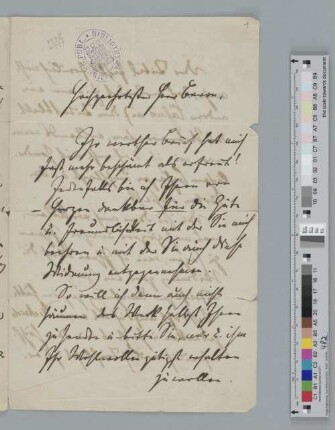 Hochgeehrtester Herr Baron,
Ihr werther Brief hat mich
fast mehr beschämt als erfreut!
Jedenfalls bin ich Ihnen von
Herzen dankbar für die Güte
u. Freundlichkeit mit der Sie mich
beehren u. mit der Sie auch diese
Widmung entgegennehmen.
So will ich denn auch nicht
säumen das Werk selbst Ihnen
zu senden u. bitte Sie, mir u. ihm
Ihr Wohlwollen gütigst erhalten
zu wollen.